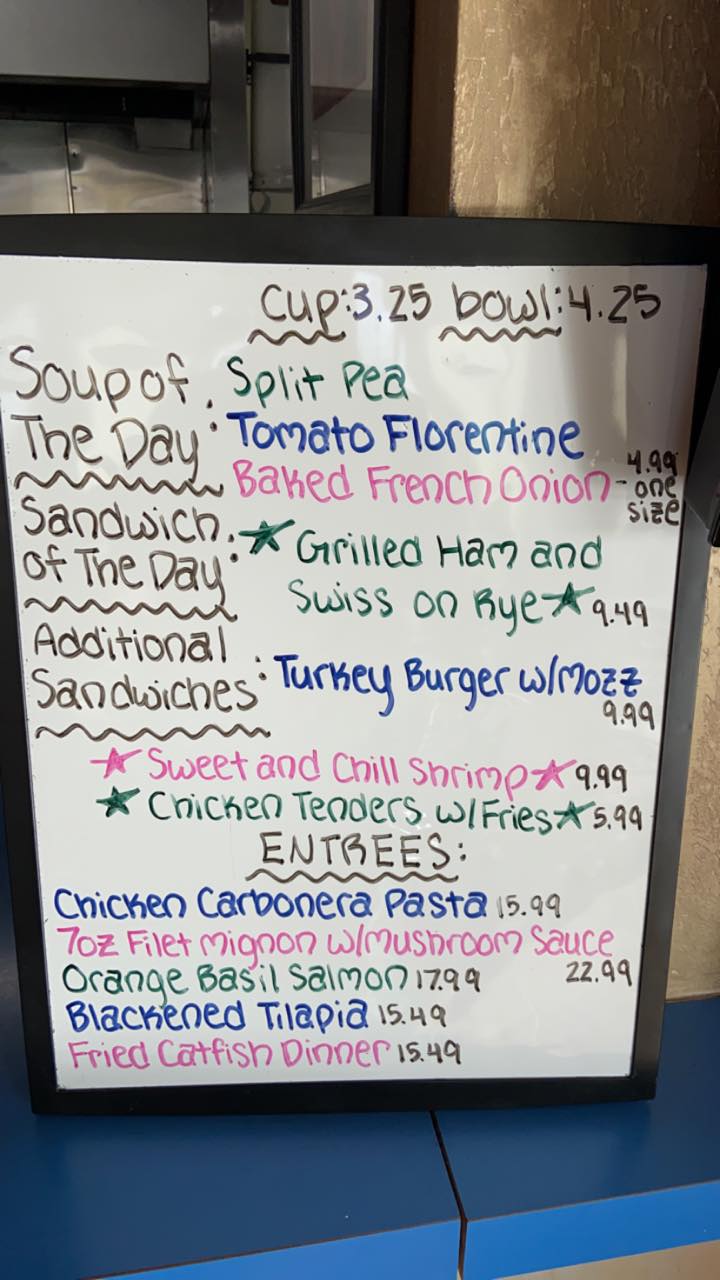 Cup: 3.25 bowl: 4.25
Soup of The Day:
Split Pea
Tomato Florentine
Baked French Onion - 4.99 one size
Sandwich of The Day:
Grilled Ham and
Swiss on Rye 9.49
Additional Sandwiches:
Turkey Burger w/Mozz
9.99
Sweet and Chill Shrimp 9.99
Chicken Tenders w/Fries 5.99
ENTREES:
Chicken Carbonera Pasta 15.99
7oz Filet mignon w/Mushroom Sauce
22.99
Orange Basil Salmon 17.99
Blackened Tilapia 15.49
Fried Catfish Dinner 15.49